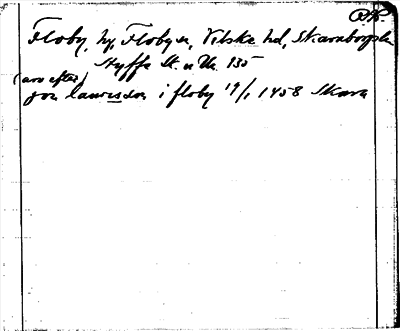 Floby, by, Floby sn, Vilske hd, Skaraborgs län
Styffe St. o Un. 135
(arv efter)
jon laurisson i floby 19/1 1458 Skara